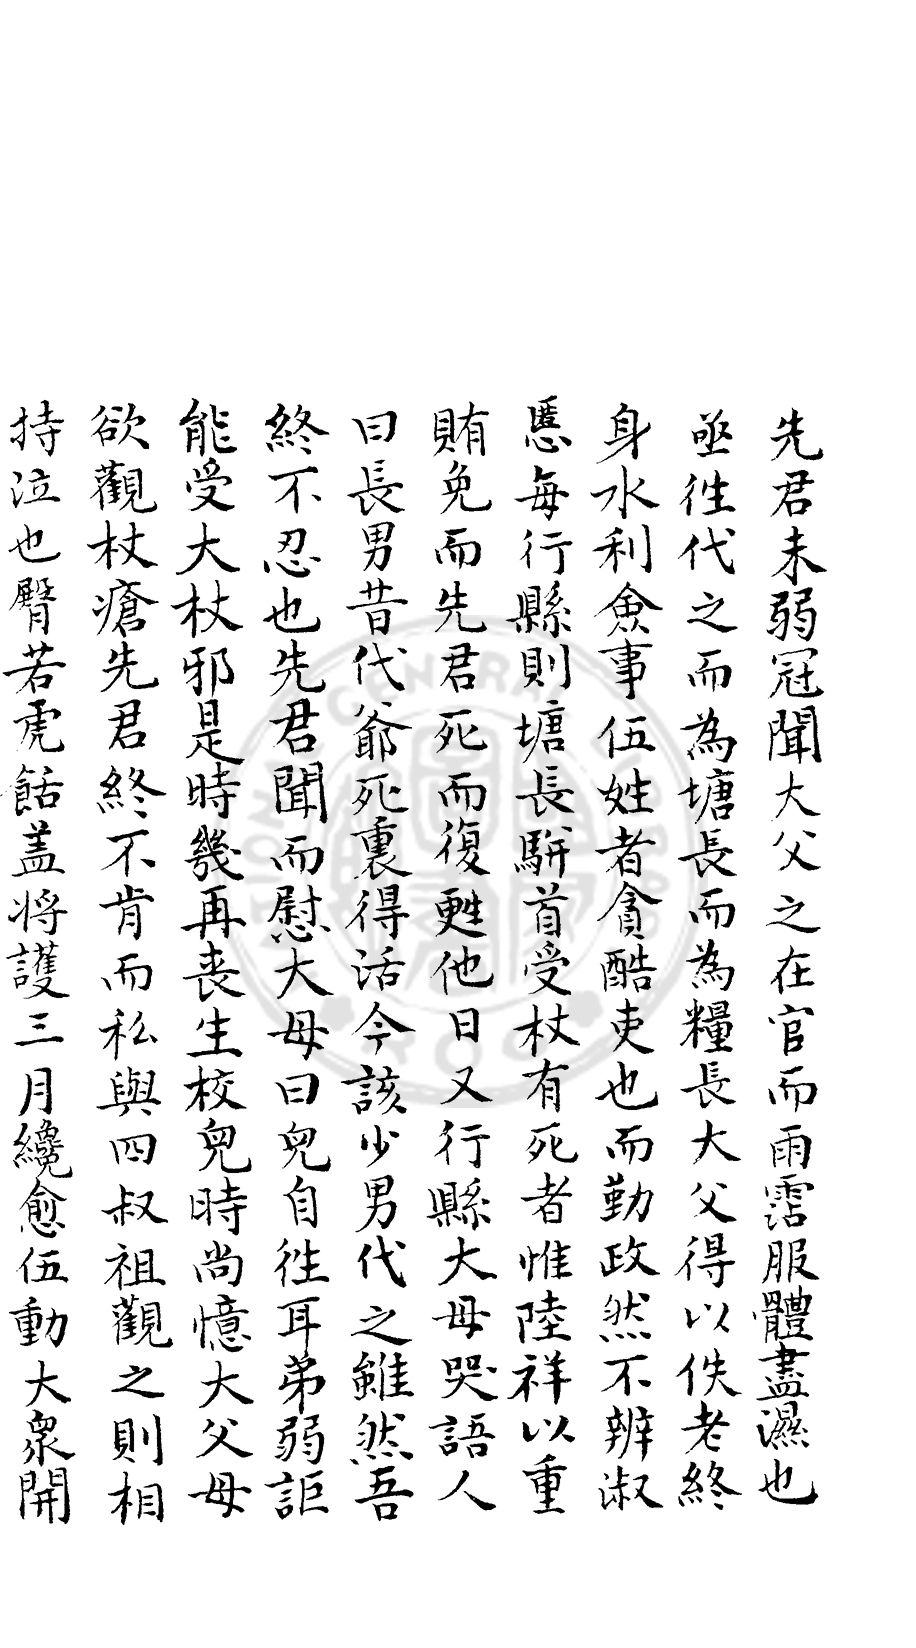 先君未弱冠聞大父之在官而雨霑服體盡濕也
亟徃代之而為塘長而為糧長大父得以佚老終
身水利僉事伍姓者貪酷吏也而勤政然不辨淑
慝每行縣則塘長駢首受杖有死者惟陸祥以重
賄免而先君死而復甦他日又行縣大母哭語人
曰長男昔代爺死裏得活今該少男代之雖然吾
終不忍也先君聞而慰大母曰兒自徃耳弟弱詎
能受大杖邪是時幾再喪生校兒時尚憶大父母
欲觀杖瘡先君終不肯而私與四叔祖觀之則相
持泣也臀若虎餂盖将護三月纔愈伍動大衆開